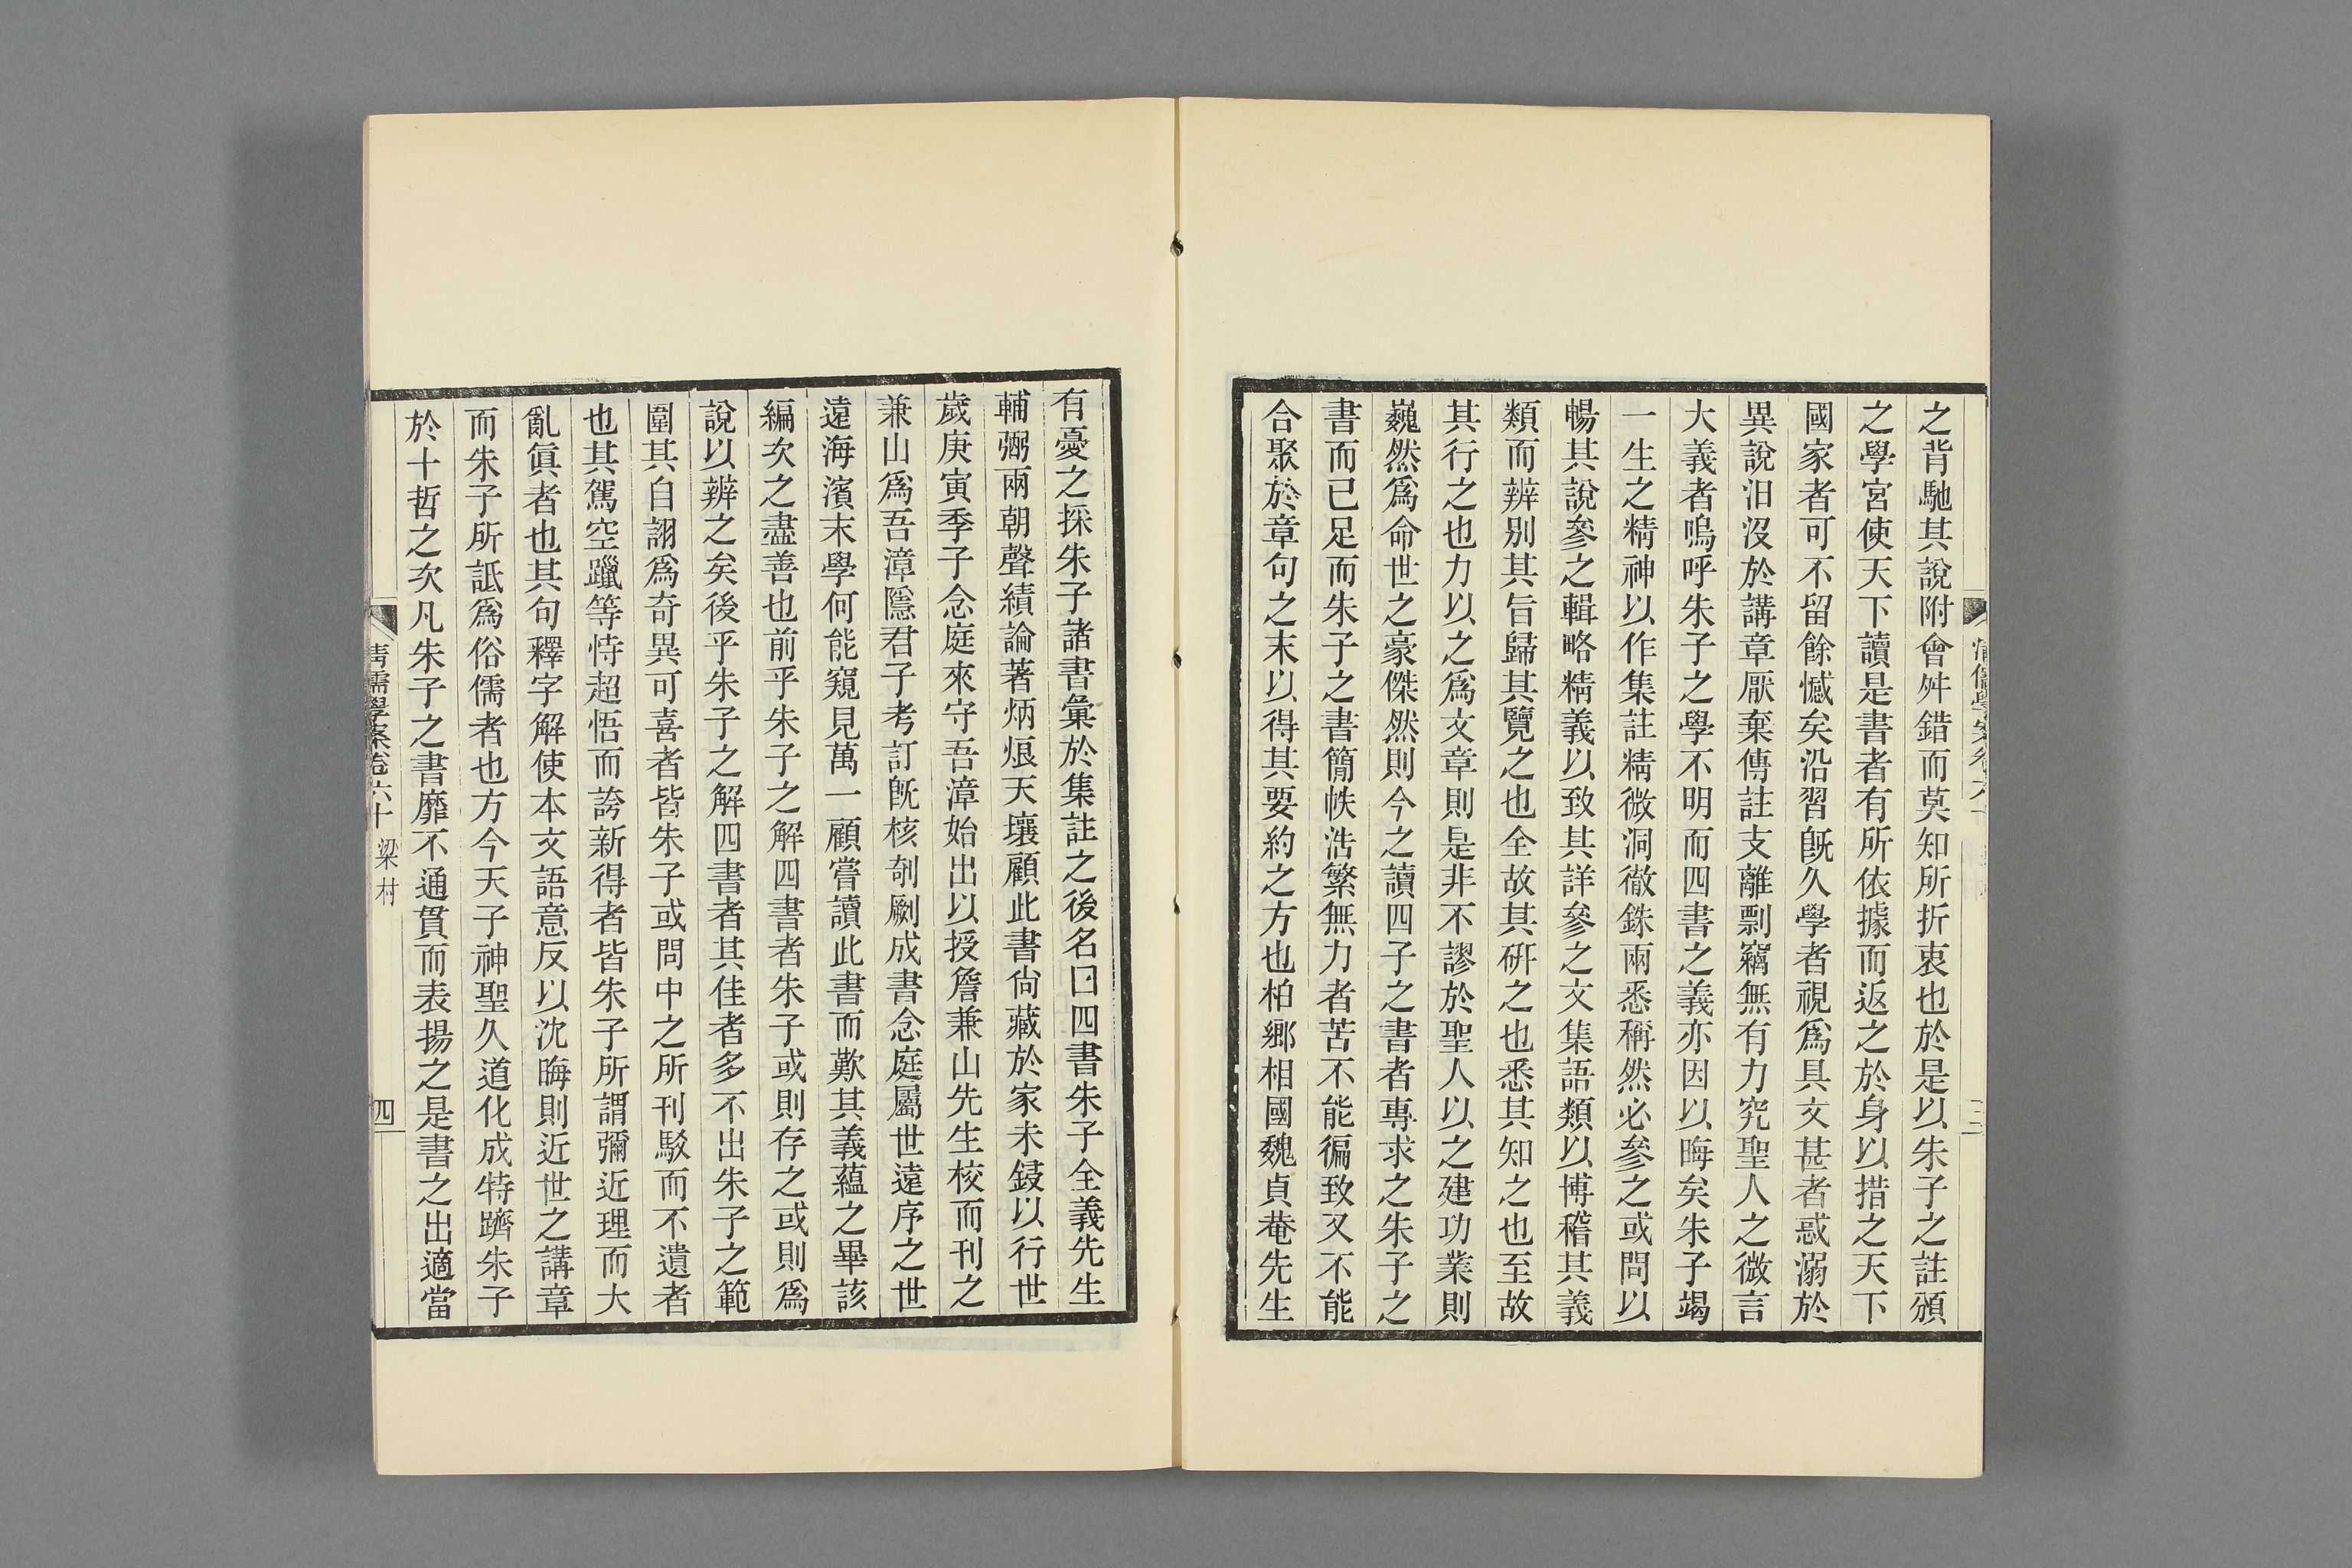 之背馳其說附會舛錯而莫知所折衷也於是以朱子之註頒
之學宮使天下讀是書者有所依據而返之於身以措之天下
國家者可不留餘憾矣沿習旣久學者視爲具文甚者惑溺於
異說汨沒於講章厭棄傳註支離剽竊無有力究聖人之微言
大義者嗚呼朱子之學不明而四書之義亦因以晦矣朱子竭
一生之精神以作集註精微洞徹銖兩悉稱然必參之或問以
暢其說參之輯略精義以致其詳參之文集語類以博稽其義
類而辨別其旨歸其覽之也全故其硏之也悉其知之也至故
其行之也力以之爲文章則是非不謬於聖人以之建功業則
巍然爲命世之豪傑然則今之讀四子之書者專求之朱子之
書而已足而朱子之書簡帙浩繁無力者苦不能徧致又不能
合聚於章句之末以得其要約之方也柏鄉相國魏貞菴先生
有憂之採朱子諸書彙於集註之後名曰四書朱子全義先生
輔弼兩朝聲績論著炳烺天壤顧此書尙藏於家未鋟以行世
歲庚寅季子念庭來守吾漳始出以授詹兼山先生校而刊之
兼山爲吾漳隱君子考訂旣核剞劂成書念庭屬世遠序之世
遠海濱末學何能窺見萬一顧嘗讀此書而歎其義蘊之畢該
編次之盡善也前乎朱子之解四書者朱子或則存之或則爲
說以辨之矣後乎朱子之解四書者其佳者多不出朱子之範
圍其自詡爲奇異可喜者皆朱子或問中之所刊駁而不遺者
也其駕空躐等恃超悟而誇新得者皆朱子所謂彌近理而大
亂眞者也其句釋字解使本文語意反以沈晦則近世之講章
而朱子所詆爲俗儒者也方今天子神聖久道化成特躋朱子
於十哲之次凡朱子之書靡不通貫而表揚之是書之出適當
清儒學案卷六十 梁村 四